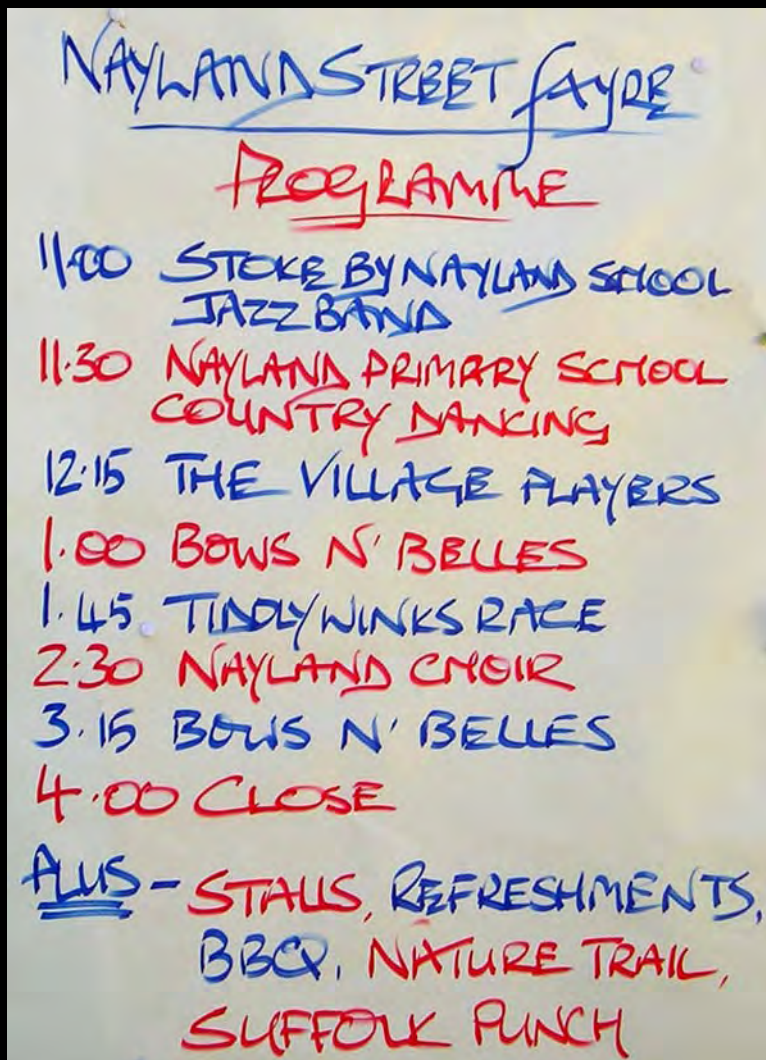 NAYLAND STREET FAYRE
PROGRAMME
11.00 STOKE BY NAYLAND SCHOOL
JAZZ BAND
11.30 NAYLAND PRIMARY SCHOOL
COUNTRY DANCING
12.15 THE VILLAGE PLAYERS
1.00 BOWS N' BELLES
1.45 TIDDLYWINKS RACE
2.30 NAYLAND CHOIR
3.15 BOWS N' BELLES
4.00 CLOSE
PLUS - STALLS, REFRESHMENTS,
BBQ, NATURE TRAIL,
SUFFOLK PUNCH